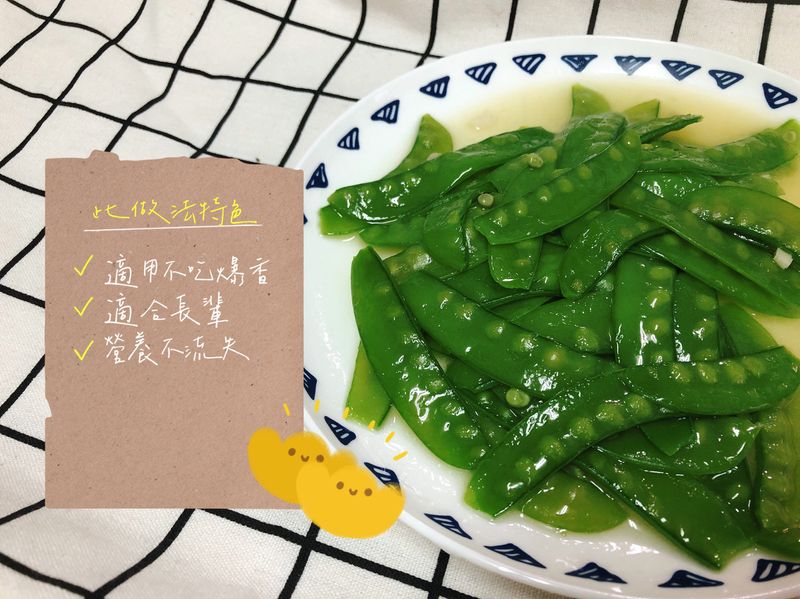 此做法特色
適用不吃爆香
適合長輩
營養不流失